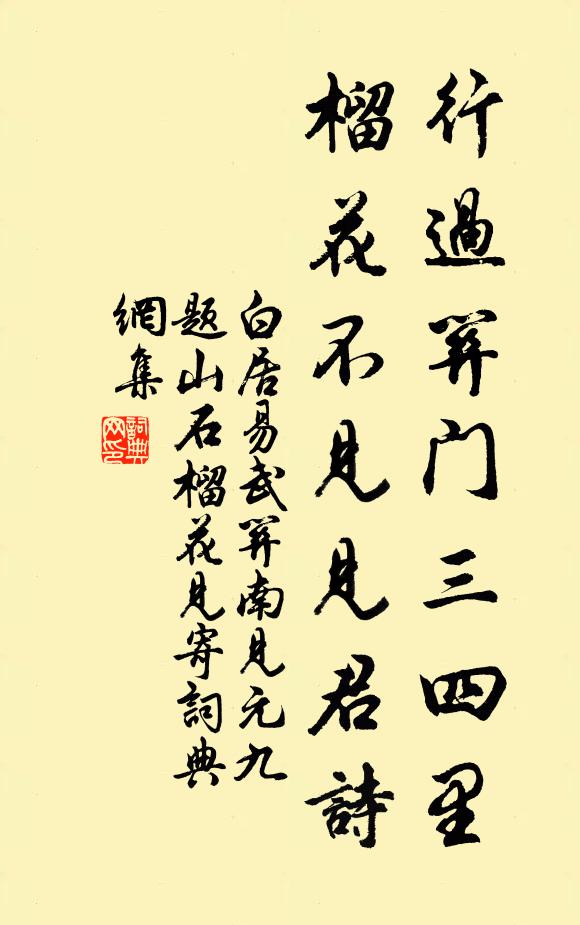 行過関门三四里
榴花不見見君詩
白居易武関南見元九
題山石榴花見寄詞典
網集
詞典
网印